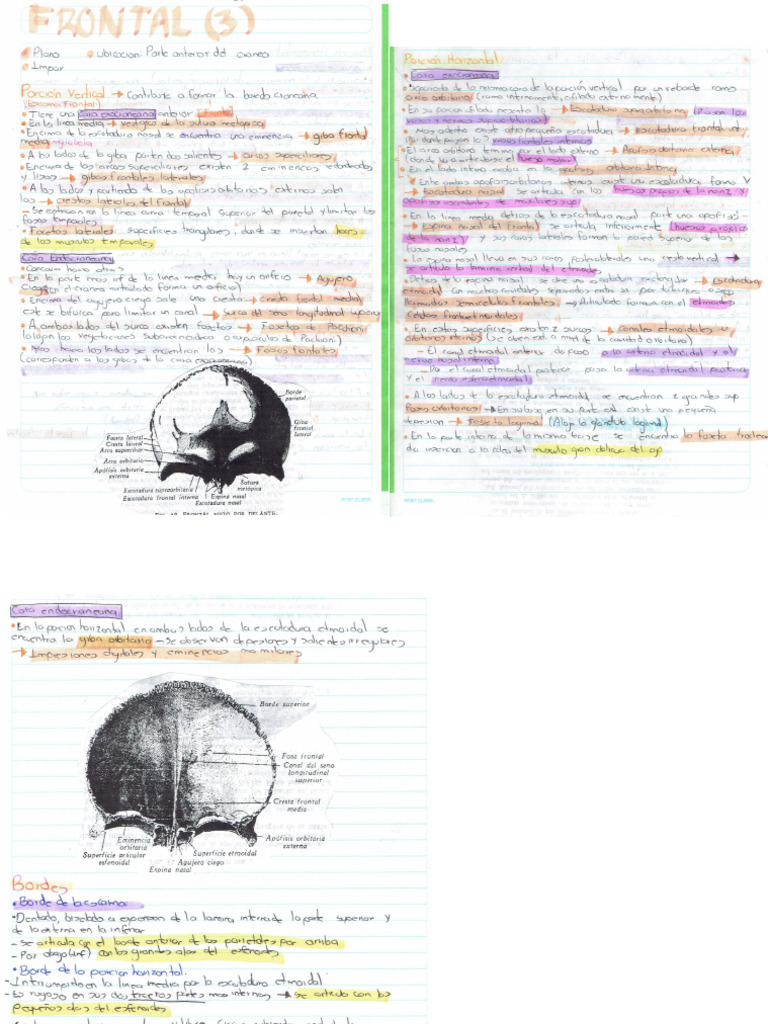 FRONTAL (3)
• Plano • Ubicación: Parte anterior del cráneo
• Impar
Porción Vertical → Contribuye a formar la bóveda craneana
(Escama Frontal)
• Tiene una cara exocraneana anterior
• En la línea media → vestigios de la sutura metópica
• Encima de la escotadura nasal se encuentra una eminencia → giba frontal
media
• A los lados de la giba parten dos salientes → arcos superciliares
• Encima de los arcos superciliares existen 2 eminencias redondeadas
y lisas → gibas frontales laterales
• A los lados y partiendo de las apófisis orbitarias externas salen
las → crestas laterales del frontal
- Se continúan en la línea curva temporal superior del parietal y limitan las
fosas temporales
• Facetas laterales superficies triangulares, donde se insertan haces
de los músculos temporales
Cara Endocraneana
• Concava hacia atrás
• En la parte más inf de la línea media hay un orificio → Agujero
Ciego (en el cráneo articulado forma un orificio)
• Encima del agujero ciego sale una cresta → cresta frontal media
este se bifurca para limitar un canal → Surco del seno longitudinal superior
• A ambos lados del surco existen fositas → Fositas de Pacchioni
(alojan las vegetaciones subaracnoideas o corpúsculos de Pacchioni)
• Mas hacia los lados se encuentran las → Fosas frontales
(corresponden a las gibas de la cara exocraneana)
Borde parietal
Giba frontal lateral
Faceta lateral
Cresta lateral
Arco superciliar
Arco orbitario
Apófisis orbitaria externa
Sutura metópica
Escotadura supraorbitaria
Escotadura frontal interna
Espina nasal
Escotadura nasal
Porción Horizontal
• Cara exocraneana
• Separada de la misma cara de la porción vertical por un reborde romo
arco orbitario (romo internamente, afilado externamente)
• En su porción media presenta la → Escotadura supraorbitaria (Pasan los
vasos y nervios supraorbitarios)
• Mas adentro existe otra pequeña escotadura → Escotadura frontal int
(por donde pasan los) vasos frontales internos
• El arco orbitario termina por el lado externo → Apófisis orbitaria externa
(donde va a articularse el hueso malar)
• En el lado interno media en apófisis orbitaria interna
• Entre ambas apófisis orbitarias internas existe una escotadura forma V
→ Escotadura nasal se articula con los huesos propios de la nariz y
apófisis ascendentes de maxilares sup
• En la línea media detrás de la escotadura nasal parte una apófisis
→ Espina nasal del frontal se articula inferiormente (huesos propios
de la nariz) y sus caras laterales forman la pared superior de las
fosas nasales
• La espina nasal lleva en sus caras posterolaterales una cresta vertical →
se articula la lámina vertical del etmoides
• Detrás de la espina nasal, se abre una escotadura rectangular → Escotadura
etmoidal con muchas cavidades separadas entre sí por tabiques óseos
llamadas semiceldillas frontales → Articulado forman con el etmoides
Celdas frontoetmoidales
• En estas superficies existen 2 surcos → canales etmoidales u
orbitarios internos (se abren est a nivel de la cavidad orbitaria)
- El canal etmoidal anterior da paso a la arteria etmoidal y el
nervio nasal interno
- Por el canal etmoidal posterior pasa la arteria etmoidal posterior
y el nervio esfenoetmoidal
• A los lados de la escotadura etmoidal se encuentran 2 grandes sup
Fosas orbitarias → En su base en su parte ext existe una pequeña
depresión → Foseta lagrimal (Aloja la glándula lagrimal)
• En la parte interna de la misma base se encuentra la foseta troclear
da inserción a la polea del músculo gran oblicuo del ojo
Cara endocraneana
• En la porción horizontal en ambos lados de la escotadura etmoidal se
encuentra la giba orbitaria - Se observan depresiones y salientes irregulares
→ Impresiones digitales y eminencias mamilares
Borde superior
Fosa frontal
Canal del seno longitudinal superior
Cresta frontal media
Apófisis orbitaria externa
Eminencia orbitaria
Superficie articular esfenoidal
Superficie etmoidal
Agujero ciego
Espina nasal
Bordes
• Borde de la escama
• Dentado, biselado a expensas de la lámina interna de la parte superior y
de la externa en la inferior
- Se articula con el borde anterior de los parietales por arriba
- Por abajo (inf) con las grandes alas del esfenoides
• Borde de la porción horizontal.
- Interrumpido en la línea media por la escotadura etmoidal.
- Es rugoso en sus dos terceras partes mas internas → se articula con las
pequeñas alas del esfenoides